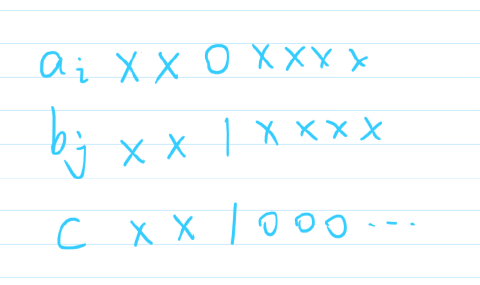 a_i x x 0 x x x x
b_j x x 1 x x x x
c x x 1 0 0 0 ...